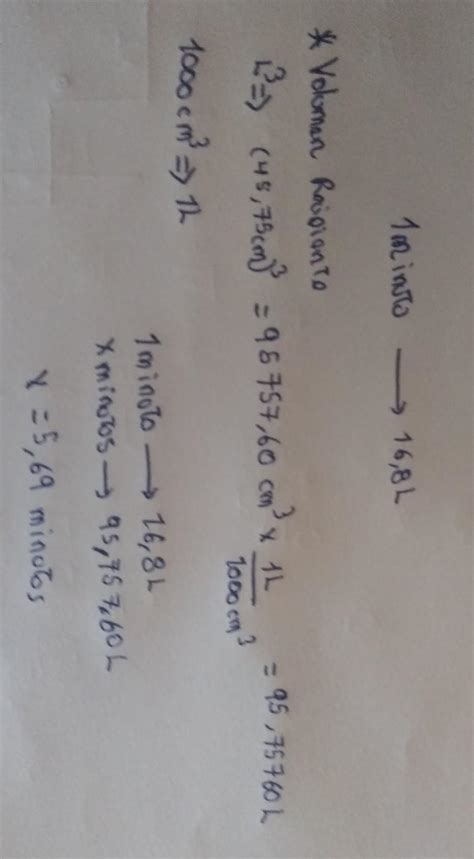 1 minuto → 16,8 L
* Volumen Recipiente
L³ => (45,75cm)³ = 95757,60 cm³ x 1L / 1000cm³ = 95,75760L
1000 cm³ => 1L
1 minuto → 16,8 L
x minutos → 95,757,60 L
x = 5,69 minutos